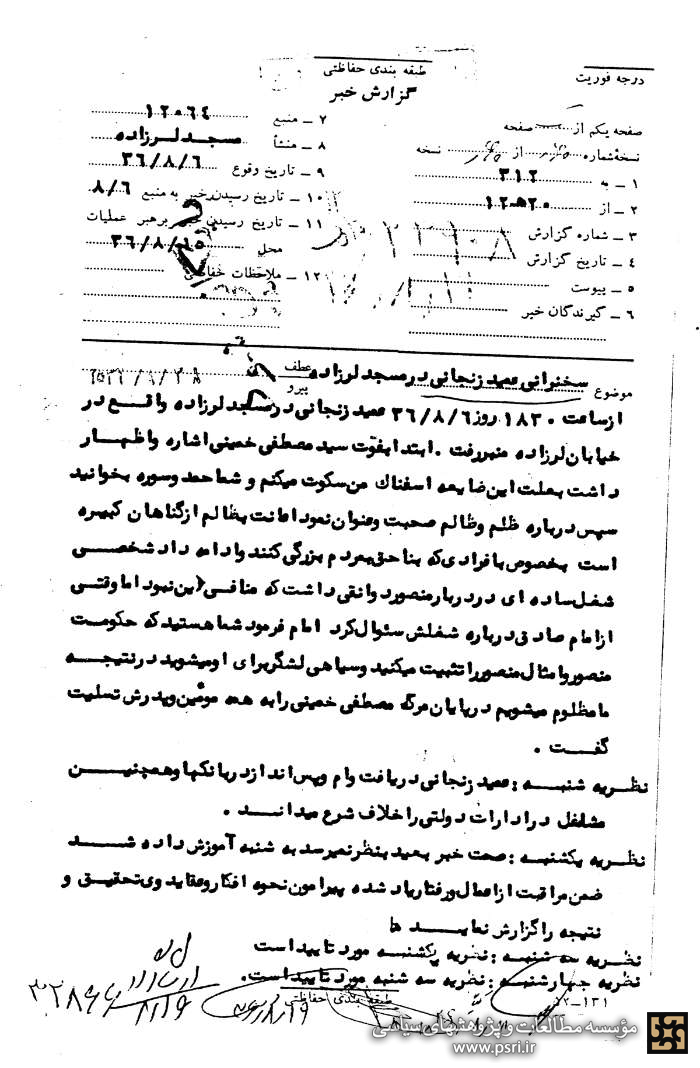 طبقه بندی حفاظتی
گزارش خبر
درجه فوریت
صفحه یکم از صفحه
نسخه شماره از نسخه
۱ ـ به ۳۱۲
۲ ـ از ۲۰ ه ۱۲
۳ ـ شماره گزارش
۴ ـ تاریخ گزارش
۵ ـ پیوست
۶ ـ گیرندگان خبر
۷ ـ منبع ۱۲۰۶۴
۸ ـ منشأ مسجد لرزاده
۹ ـ تاریخ وقوع ۳۶/۸/۶
۱۰ ـ تاریخ رسیدن خبر به منبع ۸/۶
۱۱ ـ تاریخ رسیدن خبر برهبر عملیات
محل ۳۶/۸/۱۵
۱۲ ـ ملاحظات حفاظتی
موضوع سخنرانی عمید زنجانی در مسجد لرزاده عطف
پیرو
از ساعت ۱۸۳۰ روز ۳۶/۸/۶ عمید زنجانی در مسجد لرزاده واقع در
خیابان لرزاده منبر رفت . ابتدا بفوت سید مصطفی خمینی اشاره واظهار
داشت بعلت این ضایعه اسفناک من سکوت میکنم و شما حمد وسوره بخوانید
سپس درباره ظلم وظالم صحبت وعنوان نمود اعانت بظالم از گناهان کبیره
است بخصوص با فرادی که بناحق بمردم بزرگی کنند وادامه داد شخصی
شغل ساده ای در دربار منصور دوانقی داشت که منافی دین نبود اما وقتی
از امام صادق درباره شغلش سئوال کرد امام فرمود شما هستید که حکومت
منصور وامثال منصور را تثبیت میکنید وسیاهی لشگر برای او میشوید در نتیجه
ما مظلوم میشویم در پایان مرگ مصطفی خمینی را به همه مومنین وپدرش تسلیت
گفت .
نظریه شنبه : عمید زنجانی دریافت وام وپس انداز در بانکها وهمچنین
مشاغل در ادارات دولتی را خلاف شرع میداند .
نظریه یکشنبه : صحت خبر بعید بنظر نمیرسد به شنبه آموزش داده شد
ضمن مراقبت از اعمال ورفتار یاد شده پیرامون نحوه افکار وعقاید وی تحقیق و
نتیجه را گزارش نماید ها
نظریه سه شنبه : نظریه یکشنبه مورد تایید است
نظریه چهارشنبه : نظریه سه شنبه مورد تایید است .
طبقه بندی حفاظتی
۱۲-۱۳۱
مؤسسه مطالعات و پژوهشهای سیاسی
www.psri.ir